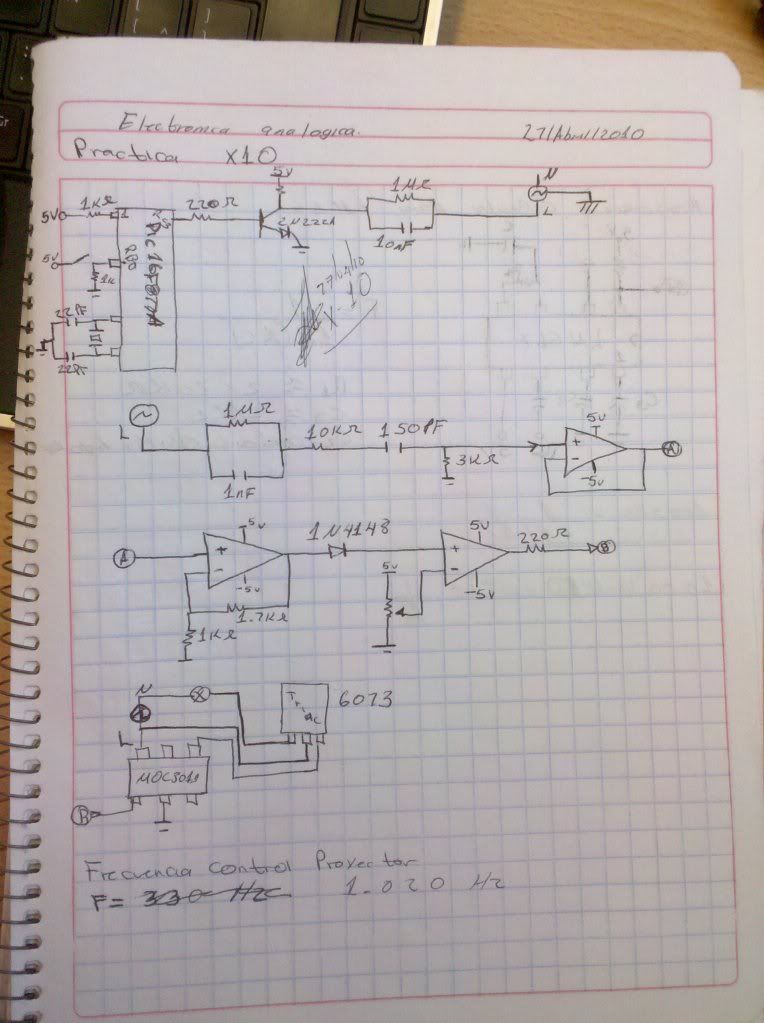 Electronica analogica. 27/Abril/2010
Practica X10
5v
1KΩ 220Ω 1MΩ N
5V 1 2N2222A L
10nF
5v RB0 PIC16F877A
1K
27/4/10
X-10
22PF
22PF
1MΩ
L 10KΩ 150PF 5v
3KΩ + - A
1nF -5v
5v 1N4148 5v 220Ω
A + - + - B
5v
-5v -5v
1.7KΩ
1KΩ
N Triac 6073
L
MOC3011
B
Frecuencia control Proyector
F= 330 Hz 1.020 Hz